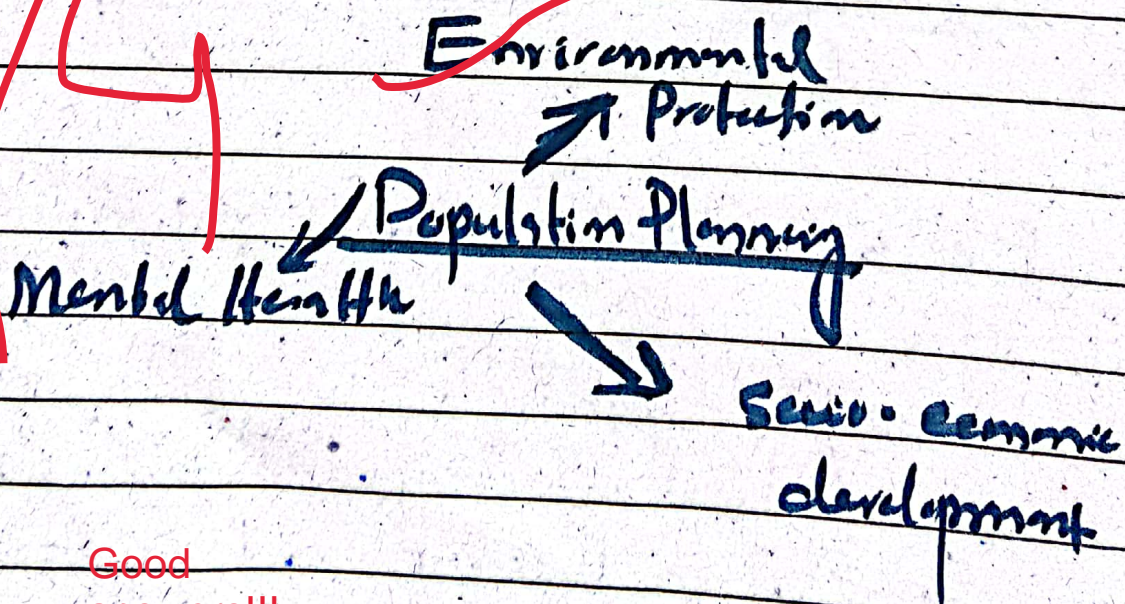 Environmental
Protection
Population Planning
Mental Health
Socio-economic
development
Good